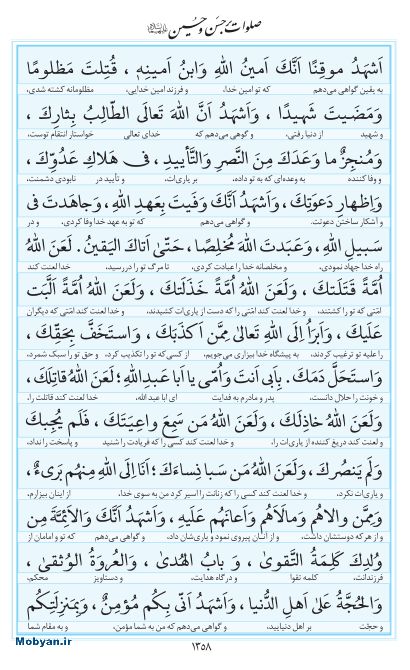 صلوات حسن و حسین علیهماالسلام
اَشهَدُ موقِنًا اَنَّكَ اَمينُ اللهِ وَابنُ اَمينِه۪ ، قُتِلتَ مَظلومًا
به یقین گواهی می‌دهم که تو امین خدا، و فرزند امین خدایی، مظلومانه کشته شدی،
وَمَضَيتَ شَهيدًا ، وَاَشهَدُ اَنَّ اللهَ تَعالَى الطّالِبُ بِثارِكَ ،
و شهید از دنیا رفتی، و گوهی می‌دهم که خدای تعالی خواستار انتقام توست،
وَمُنجِزٌ ما وَعَدَكَ مِنَ النَّصرِ وَالتَّأييدِ ، فى هَلاكِ عَدُوِّكَ ،
و وفا کننده به وعده‌ای که به تو داده، بر یاری‌ات، و تأیید در نابودی دشمنت،
وَاِظهارِ دَعوَتِكَ ، وَاَشهَدُ اَنَّكَ وَفَيتَ بِعَهدِ اللهِ ، وَجاهَدتَ فى
و آشکار ساختن دعوتت. و گواهی می‌دهم که تو به عهد خدا وفا کردی، و در
سَبيلِ اللهِ ، وَعَبَدتَ اللهَ مُخلِصًا ، حَتّىٰ اَتاكَ اليَقينُ . لَعَنَ اللهُ
راه خدا جهاد نمودی، و مخلصانه خدا را عبادت کردی، تا مرگ تو را در رسید، خدا لعنت کند
اُمَّةً قَتَلَتكَ ، وَلَعَنَ اللهُ اُمَّةً خَذَلَتكَ ، وَلَعَنَ اللهُ اُمَّةً اَلَّبَت
امّتی که تو را کشتند، و خدا لعنت کند امّتی را که دست از یاری‌ات کشیدند، و خدا لعنت کند امّتی که دیگران
عَلَيكَ ، وَاَبرَأُ اِلَى اللهِ تَعالىٰ مِمَّن اَكذَبَكَ ، وَاستَخَفَّ بِحَقِّكَ ،
را علیه تو ترغیب کردند، به پیشگاه خدا بیزاری می‌جویم، از کسی که تو را تکذیب کرد، و حق تو را سبک شمرد،
وَاستَحَلَّ دَمَكَ . بِاَبى اَنتَ وَاُمّى يا اَبا عَبدِاللهِ ؛ لَعَنَ اللهُ قاتِلَكَ ،
و خونت را حلال دانست، پدر و مادرم به فدایت ای ابا عبد الله، خدا لعنت کند قاتلت را،
وَلَعَنَ اللهُ خاذِلَكَ ، وَلَعَنَ اللهُ مَن سَمِعَ واعِيَتَكَ ، فَلَم يُجِبكَ
و لعنت کند دریغ کننده از یاری‌ات را، و خدا لعنت کند کسی را که فریادت را شنید و پاسخت را نداد،
وَلَم يَنصُركَ ، وَلَعَنَ اللهُ مَن سَبا نِساءَكَ ؛ اَنَا اِلَى اللهِ مِنهُم بَرىءٌ ،
و یاری‌ات نکرد، و خدا لعنت کند کسی را که زنانت را اسیر کرد من به سوی خدا، از اینان بیزارم،
وَمِمَّن والاهُم وَمالَاَهُم وَاَعانَهُم عَلَيهِ ، وَاَشهَدُ اَنَّكَ وَالاَئِمَّةَ مِن
و از هر که دوستشان داشت، و از آنان پیروی نمود و یاری‌شان داد، و گواهی می‌دهم که تو و امامان از
وُلدِكَ كَلِمَةُ التَّقوىٰ ، وَ بابُ الهُدىٰ ، وَالعُروَةُ الوُثقىٰ ،
فرزندانت، کلمه تقوا و درگاه هدایت، و دستاویز محکم،
وَالحُجَّةُ عَلىٰ اَهلِ الدُّنيا ، وَاَشهَدُ اَنّى بِكُم مُؤمِنٌ ، وَبِمَنزِلَتِكُم
و حجّت بر اهل دنیایید، و گواهی می‌دهم که من به شما مؤمن، و به مقام شما
۱۳۵۸
Mobyan.ir